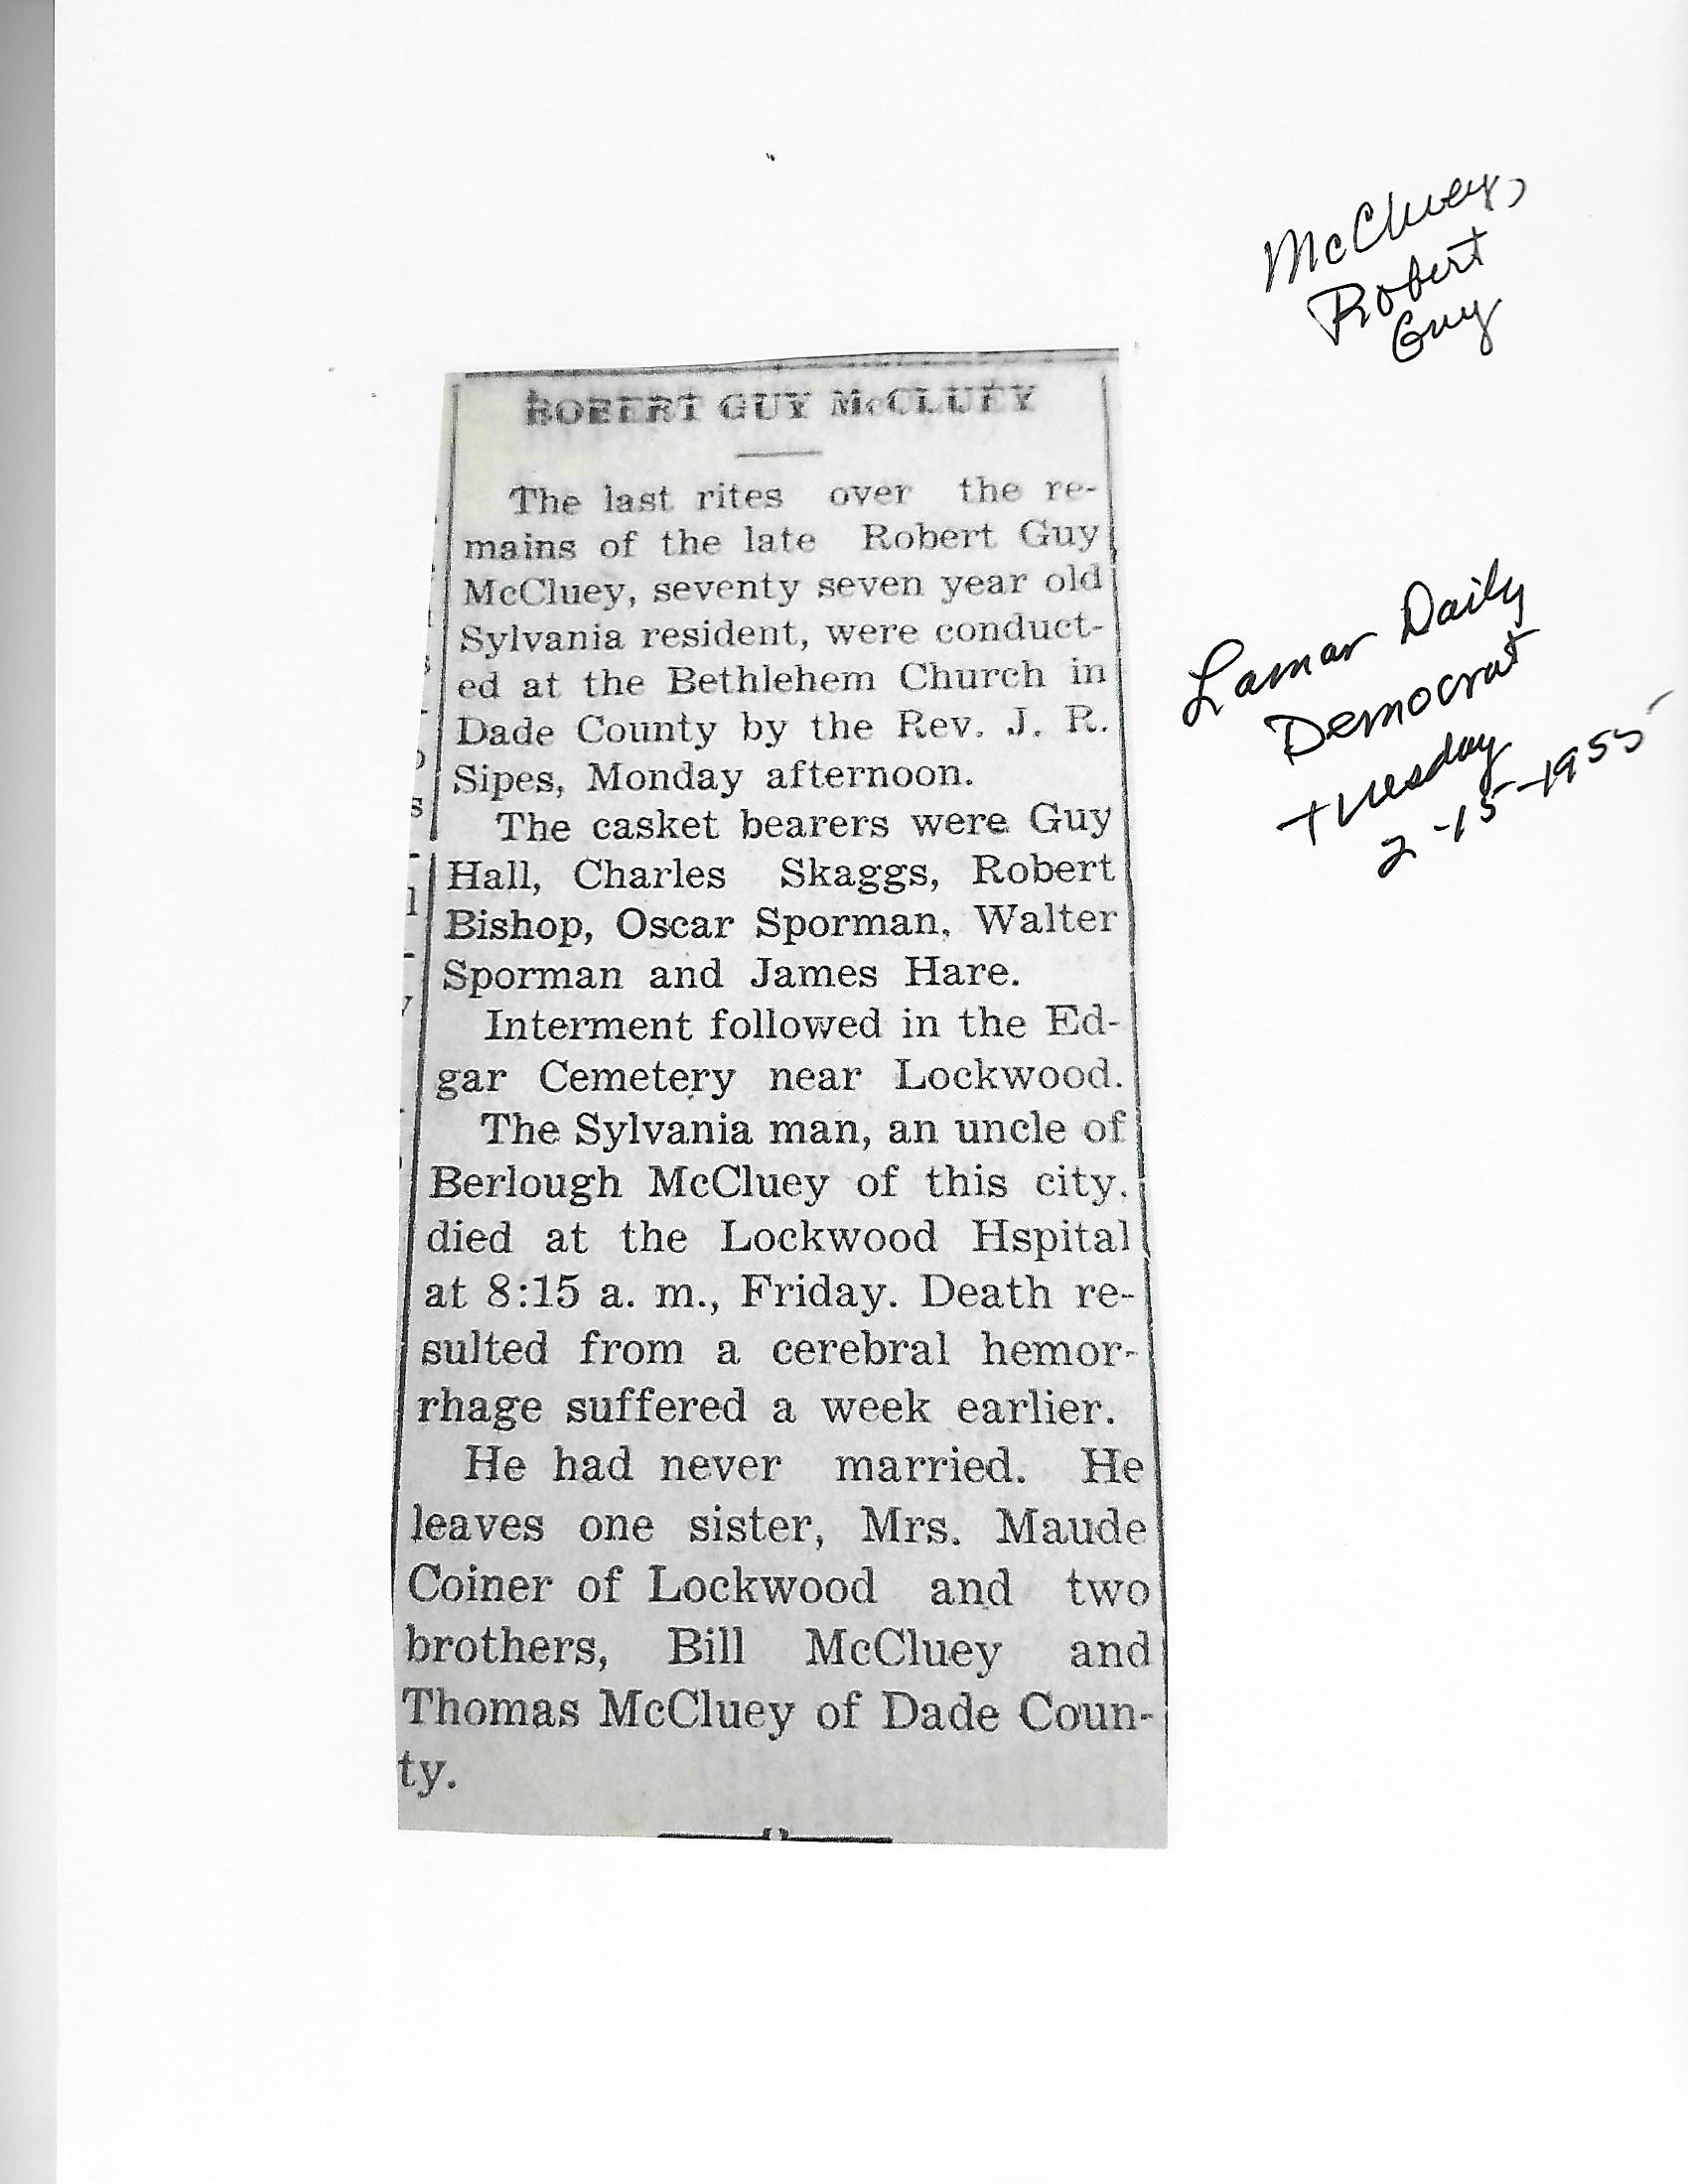 McCluey,
Robert
Guy
Lamar Daily
Democrat
Tuesday
2-15-1955
ROBERT GUY McCLUEY
The last rites over the re-
mains of the late Robert Guy
McCluey, seventy seven year old
Sylvania resident, were conduct-
ed at the Bethlehem Church in
Dade County by the Rev. J. R.
Sipes, Monday afternoon.
The casket bearers were Guy
Hall, Charles Skaggs, Robert
Bishop, Oscar Sporman, Walter
Sporman and James Hare.
Interment followed in the Ed-
gar Cemetery near Lockwood.
The Sylvania man, an uncle of
Berlough McCluey of this city,
died at the Lockwood Hspital
at 8:15 a. m., Friday. Death re-
sulted from a cerebral hemor-
rhage suffered a week earlier.
He had never married. He
leaves one sister, Mrs. Maude
Coiner of Lockwood and two
brothers, Bill McCluey and
Thomas McCluey of Dade Coun-
ty.